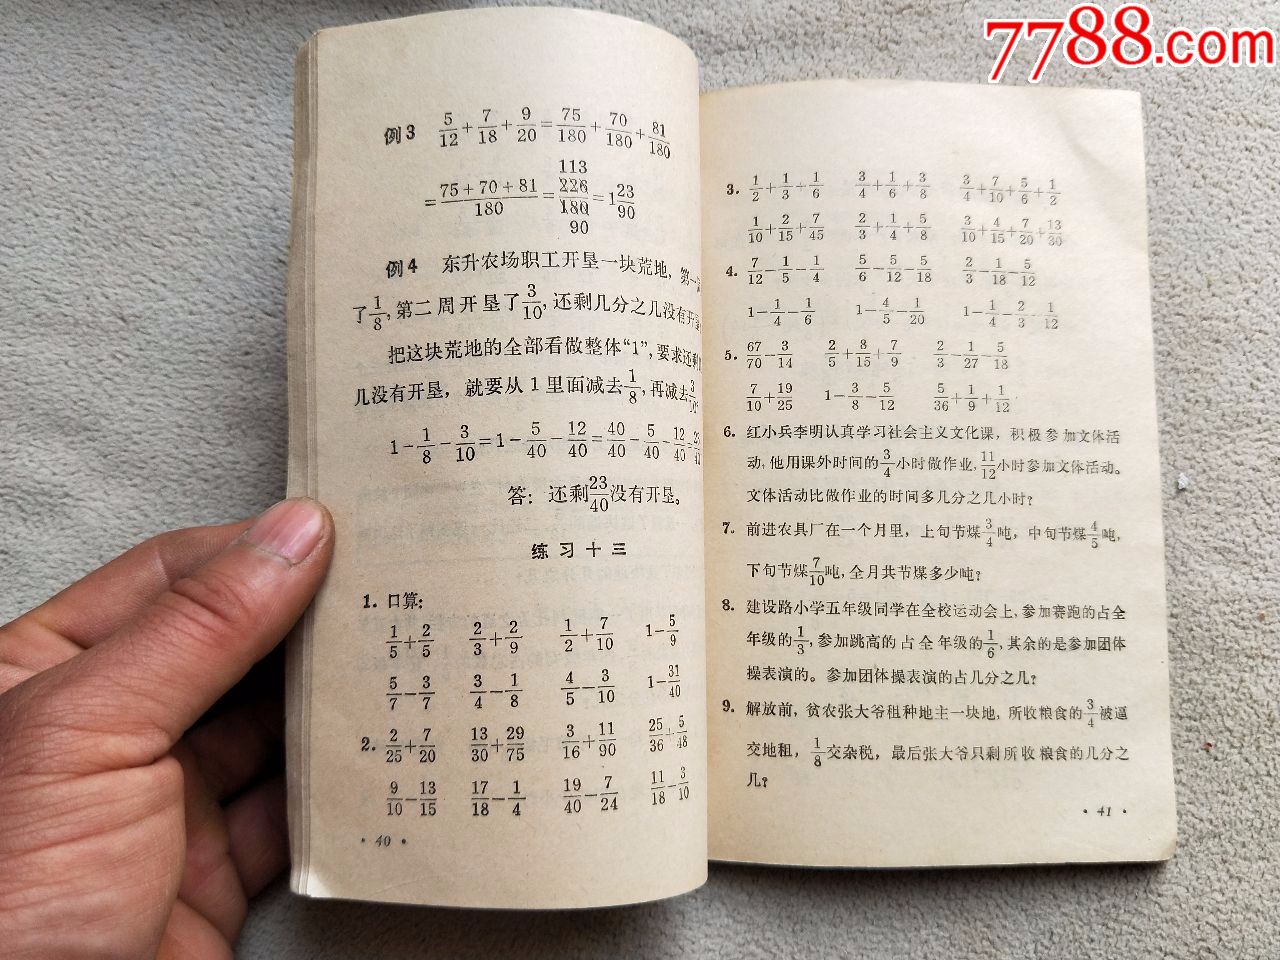 7788.com
例3 5/12+7/18+9/20=75/180+70/180+81/180
=(75+70+81)/180=226/180=1 23/90
113
90
例4 东升农场职工开垦一块荒地,第一
了1/8,第二周开垦了3/10,还剩几分之几没有开
把这块荒地的全部看做整体“1”,要求还剩
几没有开垦,就要从1里面减去1/8,再减去3/10
1-1/8-3/10=1-5/40-12/40=40/40-5/40-12/40=
答:还剩23/40没有开垦。
练习十三
1. 口算:
1/5+2/5 2/3+2/9 1/2+7/10 1-5/9
5/7-3/7 3/4-1/8 4/5-3/10 1-31/40
2. 2/25+7/20 13/30+29/75 3/16+11/90 25/36+5/48
9/10-13/15 17/18-1/4 19/40-7/24 11/18-3/10
· 40 ·
3. 1/2+1/3+1/6 3/4+1/6+3/8 3/4+7/10+5/6+1/2
1/10+2/15+7/45 2/3+1/4+5/8 3/10+4/15+7/20+13/30
4. 7/12-1/5-1/4 5/6-5/12-5/18 2/3-1/18-5/12
1-1/4-1/6 1-4/5-1/20 1-1/4-2/3-1/12
5. 67/70-3/14 2/5+8/15+7/9 2/3-1/27-5/18
7/10+19/25 1-3/8-5/12 5/36+1/9+1/12
6. 红小兵李明认真学习社会主义文化课,积极参加文体活
动,他用课外时间的3/4小时做作业,11/12小时参加文体活动。
文体活动比做作业的时间多几分之几小时?
7. 前进农具厂在一个月里,上旬节煤3/4吨,中旬节煤4/5吨,
下旬节煤7/10吨,全月共节煤多少吨?
8. 建设路小学五年级同学在全校运动会上,参加赛跑的占全
年级的1/3,参加跳高的占全年级的1/6,其余的是参加团体
操表演的。参加团体操表演的占几分之几?
9. 解放前,贫农张大爷租种地主一块地,所收粮食的3/4被逼
交地租,1/8交杂税,最后张大爷只剩所收粮食的几分之
几?
· 41 ·